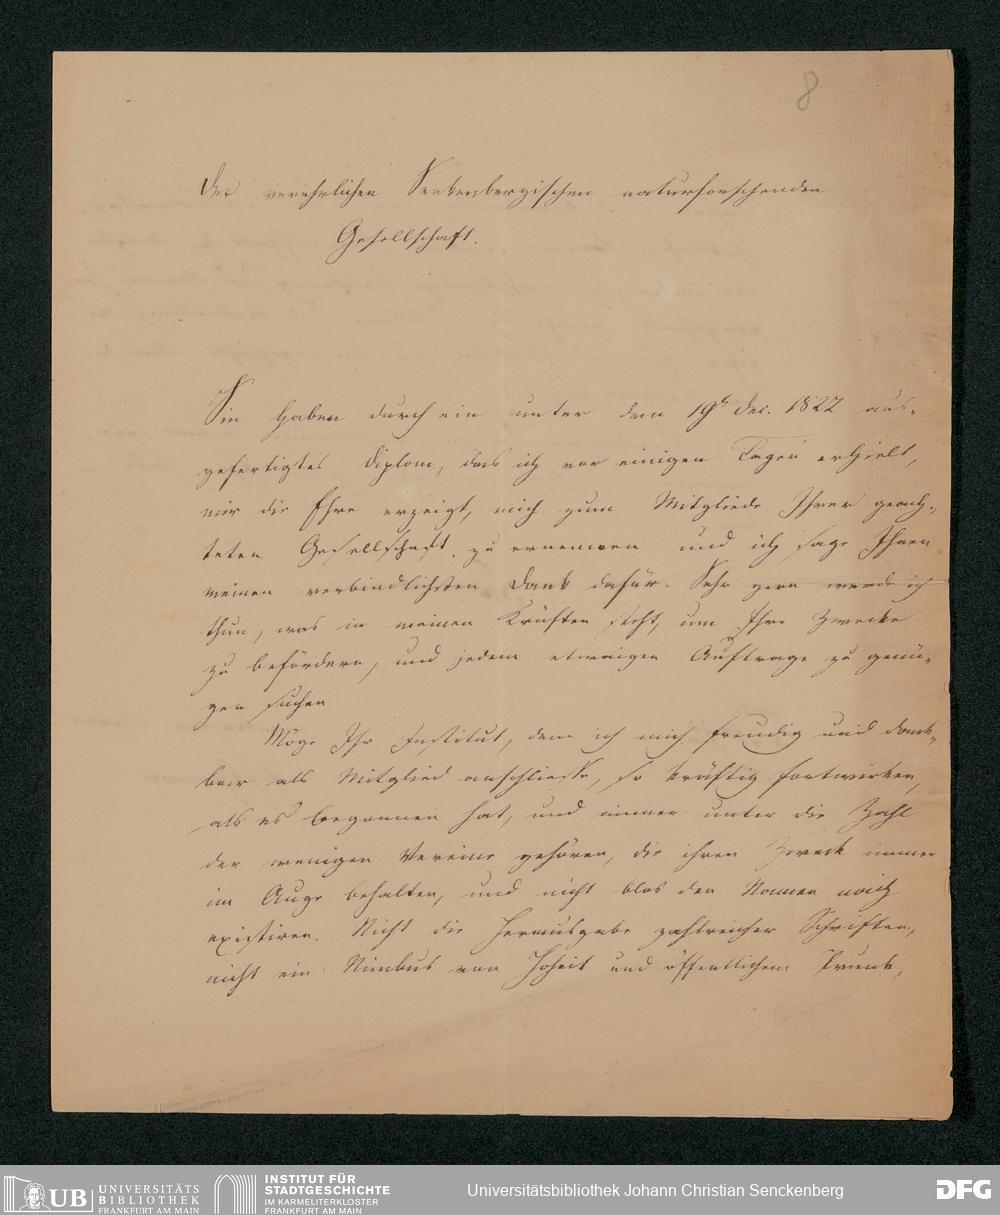 8
Der verehrlichen Senkenbergischen naturforschenden
Gesellschaft.
Sie haben durch ein unter dem 19t Dec. 1822 aus-
gefertigtes Diplom, das ich vor einigen Tagen erhielt,
mir die Ehre erzeigt, mich zum Mitgliede Ihrer geach-
teten Gesellschaft zu ernennen und ich sage Ihnen
meinen verbindlichsten Dank dafür. Sehr gern werde ich
thun, was in meinen Kräften steht, um Ihre Zwecke
zu befördern, und jedem etwaigen Auftrage zu genü-
gen suchen
Möge Ihr Institut, dem ich mich freudig und dank-
bar als Mitglied anschliesse, so kräftig fortwirken,
als es begonnen hat, und immer unter die Zahl
der wenigen Vereine gehören, die ihren Zweck immer
im Auge behalten, und nicht blos den Namen nach
existiren. Nicht die Herausgabe zahlreicher Schriften,
nicht ein Nimbus von Hoheit und öffentlichem Prunk,
UB UNIVERSITÄTS
BIBLIOTHEK
FRANKFURT AM MAIN
INSTITUT FÜR
STADTGESCHICHTE
IM KARMELITERKLOSTER
FRANKFURT AM MAIN
Universitätsbibliothek Johann Christian Senckenberg
DFG